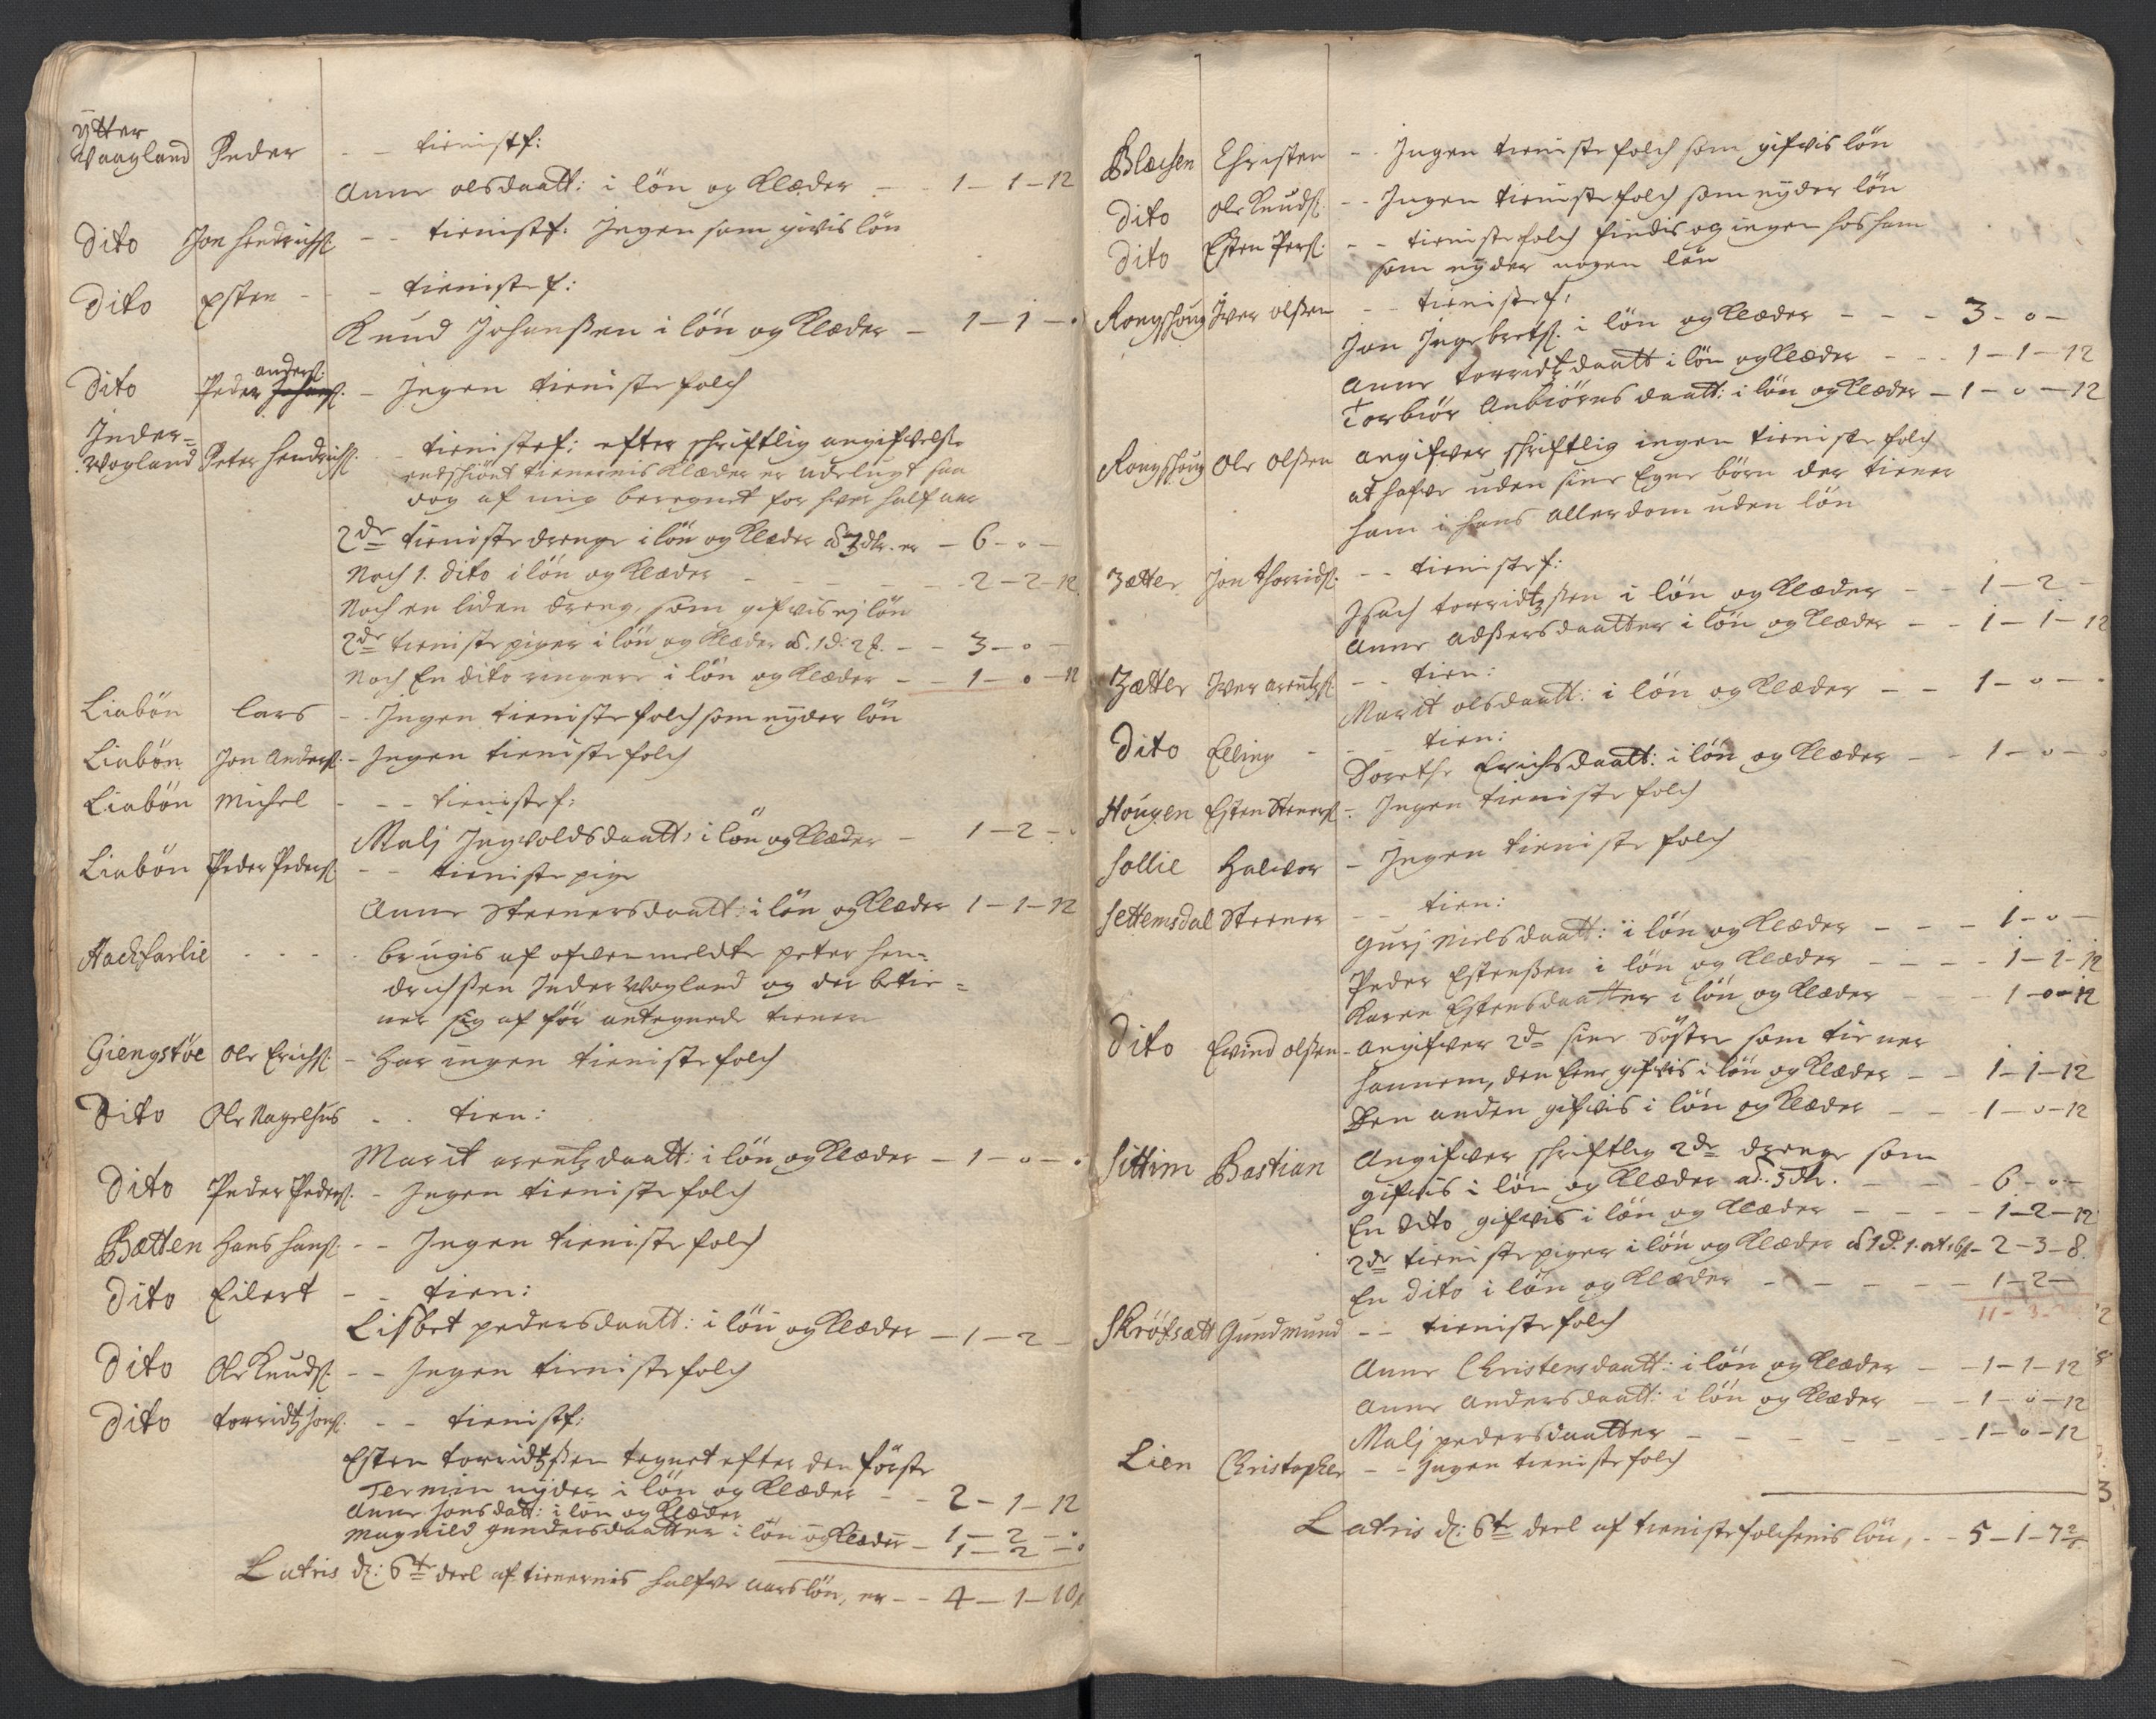 Ytter
Waagland Peder - - tienistf:
Anne olsdaatt: i lön og Klæder - - 1-1-12
Dito Jon Hendrichs: - - tienistf: Ingen som givis lön
Dito Esten - - tienistef:
Knud Johanßen i lön og Klæder - 1-1-0
anders:
Dito Peder - Ingen tieniste folch
Inder=
Wogland Peter Hendrichs: - tienistef: efter schriftlig angifvelse
endschiönt tienernis Klæder er udelugt saa
dog af mig beregnet for hver half aar
2de tieniste drenge i lön og Klæder a 3 dlr. er - 6-0-
Noch 1. dito i lön og Klæder - - - 2-2-12
Noch en liden dreng, som gifvis ej lön
2de tieniste piger i lön og Klæder a. 1d: 2 - - 3-0-
Noch En dito ringere i lön og Klæder - - 1-0-12
Liabön Lars - Ingen tieniste folch som nyder lön
Liabön Jon Anders: - Ingen tieniste folch
Liabön Michel - - - tienistef:
Malj Ingvoldsdaatt: i lön og Klæder - 1-2-0
Liabön Peder Peders: - - tieniste pige
Anne Steenersdaatt: i lön og Klæder 1-1-12
Hachsarlie - - - brugis af ofvenmeldte peter hen=
drichßen Inder Wogland og der betie=
ner sig af för antegnede tienere
Giengstöe Ole Erichs: - Har ingen tieniste folch
Dito Ole Nagelhus - - tien:
Marit arentzdaatt: i lön og Klæder - 1-0-0
Dito Peder Peders: - Ingen tieniste folch
Bætten Hans Hans: - - Ingen tieniste folch
Dito Eilert - - tien:
Lisbet pedersdaatt: i lön og Klæder - 1-2-
Dito Ole Knuds: - - Ingen tieniste folch
Dito torridtz Jons: - - tienistf:
Esten torridtzßen tegnet efter den förste
Termin nyder i lön og Klæder - - 2-1-12
Anne Jonsdatt: i lön og Klæder 1-2-0
Magnild gundersdaatter i lön og Klæder - 1-2-0
Lateris dz: 6te deel af tienernis halfve aars lön, er - - 4-1-10
Blæchen Christen - - Ingen tieniste folch som gifvis lön
Dito Ole Knuds: - - Ingen tieniste folch som nyder lön
Dito Esten Pers: - - tieniste folch findis og ingen hos ham
som nyder nogen lön
Rongshoug Iver olßen - - tienistef:
Jon Ingebrets: i lön og Klæder - - - 3-0-
Anne torridtzdaatt i lön og Klæder - - - 1-1-12
Torbiör Anbiörnsdaatt: i lön og Klæder - 1-0-12
Rongshoug Ole Olßen angifver schriftlig ingen tieniste folch
at hafve uden sine Egne börn der tiener
ham i hans allerdom uden lön
Zætter Jon Thorrids: - - tienistef:
Isach torridtzßen i lön og Klæder - - 1-2-
Anne adßersdaatter i lön og Klæder - - 1-1-12
Zætter Iver arentzs: - - tien:
Marit olsdaatt: i lön og Klæder - - 1-0-0
Dito Elling - - - tien:
Dorethe Erichsdaatt: i lön og Klæder - - 1-0-0
Hougen Esten Steners: - Ingen tieniste folch
Sollie Halvor - Ingen tieniste folch
Settemsdal Steener - - tien:
Gurj Nielsdaatt: i lön og Klæder - - - 1-0-
Peder Estenßen i lön og Klæder - - - 1-1-12
Karen Estensdaatter i lön og Klæder - - - 1-0-12
Dito Evind olßen - angifver 2de sine Söstre som tiener
hannem, den Eene gifvis i lön og Klæder - - 1-1-12
Den anden gifvis i lön og Klæder - - - 1-0-12
Sittim Bastian Angifver schriftlig 2de drenge som
gifvis i lön og Klæder ad. 3 dlr. - - - 6-0-
En Dito gifvis i lön og Klæder - - - - 1-2-12
2de tieniste piger i lön og Klæder a 1d. 1. ort 16s - 2-3-8
En Dito i lön og Klæder - - - - - - 1-2-
11-3-
Skröfsætt Gundmund - - tieniste folch
Anne Christensdaatt: i lön og Klæder - - 1-1-12
Anne Andersdaatt: i lön og Klæder - - 1-0-12
Malj pedersdaatter - - - - - - 1-0-12
Lien Christopher - - Ingen tieniste folch
Lateris dz: 6te deel af tieniste folchenis lön, - - 5-1-7